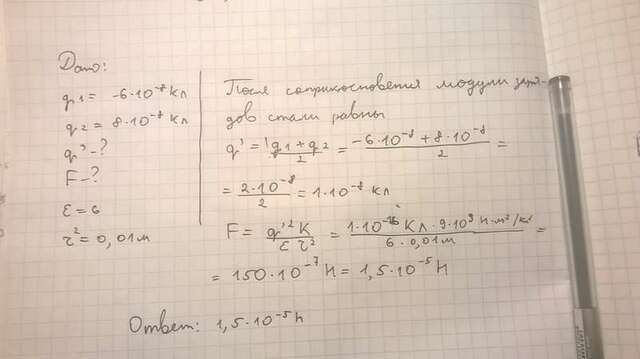 Дано:
q1 = -6·10⁻⁸ Кл
q2 = 8·10⁻⁸ Кл
q' - ?
F - ?
ε = 6
r² = 0,01м
После соприкосновения модули заря-
дов стали равны
q' = (q1 + q2)/2 = (-6·10⁻⁸ + 8·10⁻⁸)/2 =
= (2·10⁻⁸)/2 = 1·10⁻⁸ Кл
F = (q'² K)/(ε r²) = (1·10⁻¹⁶ Кл · 9·10⁹ Н·м²/кл²)/(6·0,01м) =
= 150·10⁻⁷ Н = 1,5·10⁻⁵ Н
Ответ: 1,5·10⁻⁵ Н